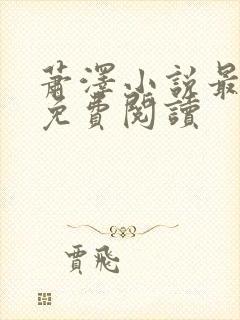 蕭澤小說最
免費閱讀
賈飛